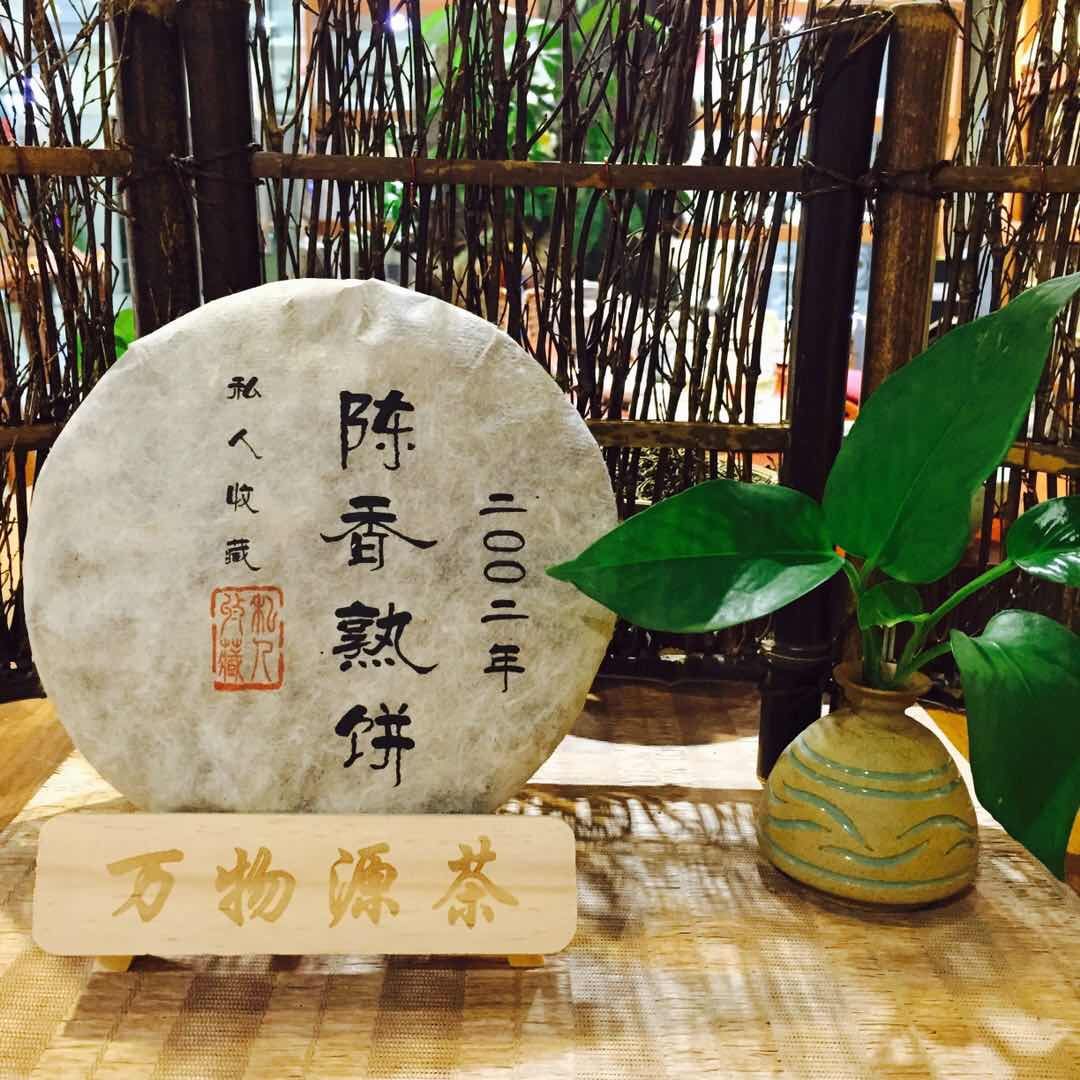 二〇〇二年
陈香熟饼
私人收藏
私人收藏
万物源茶